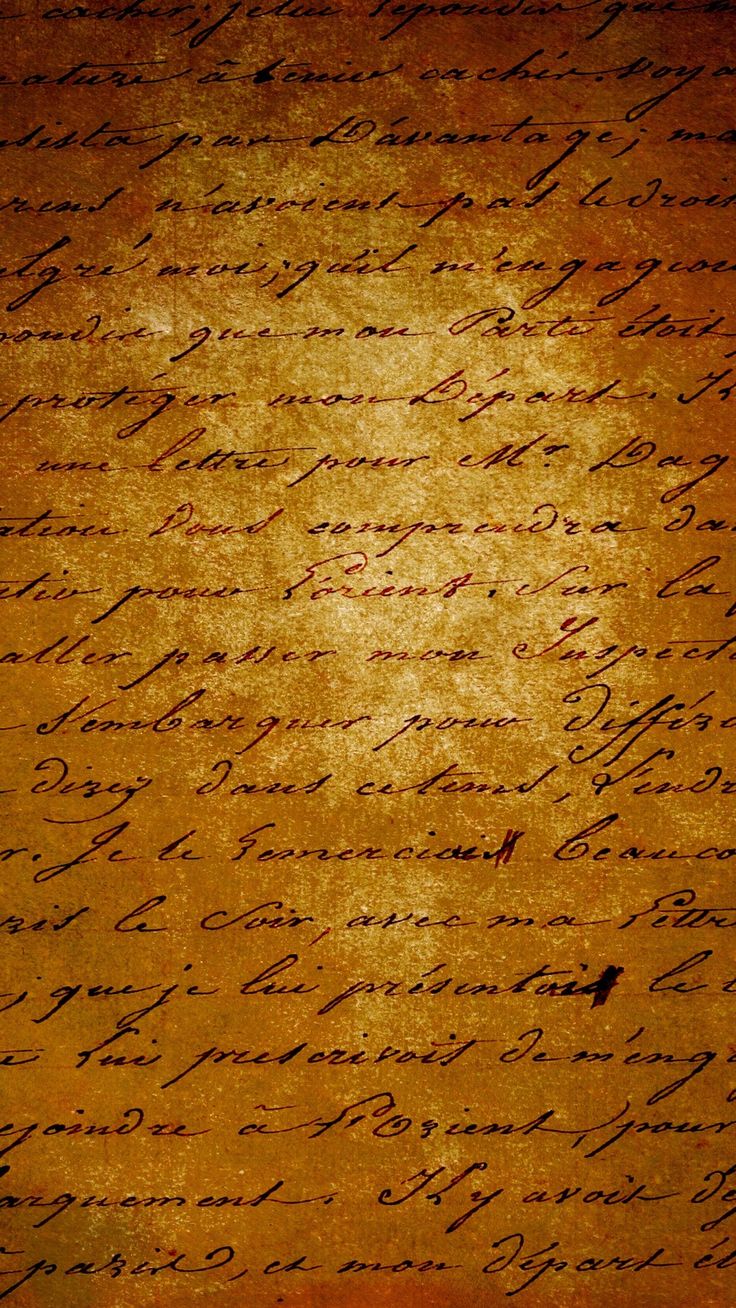 cacher; je lui répondis que m
ature à tenir cachée. voya
sista pas D'avantage; ma
rens n'avoient pas le droit
algré moi; qu'il m'engageoi
pondis que mon Parti étoit
protéger mon Départ. Il
une lettre pour Mr. Dag
ation Vous comprendra da
tiv pour L'orient. Sur la
aller passer mon Inspecti
s'embarquer pour différe
direz dans ce tems, s'endr
r. Je le remerciois beauco
ris le Soir, avec ma Lettre
; que je lui présentois le
e lui prescrivoit de m'eng
ejoindre à L'Orient, pour
arquement. Il y avoit de
paris, et mon départ ét